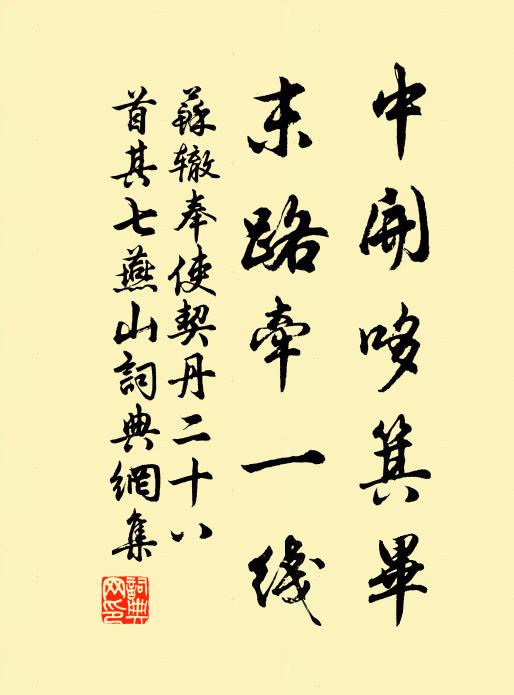 中開哆箕畢
末路牽一线
蘇辙奉使契丹二十八
首其七燕山詞典網集
詞典网印